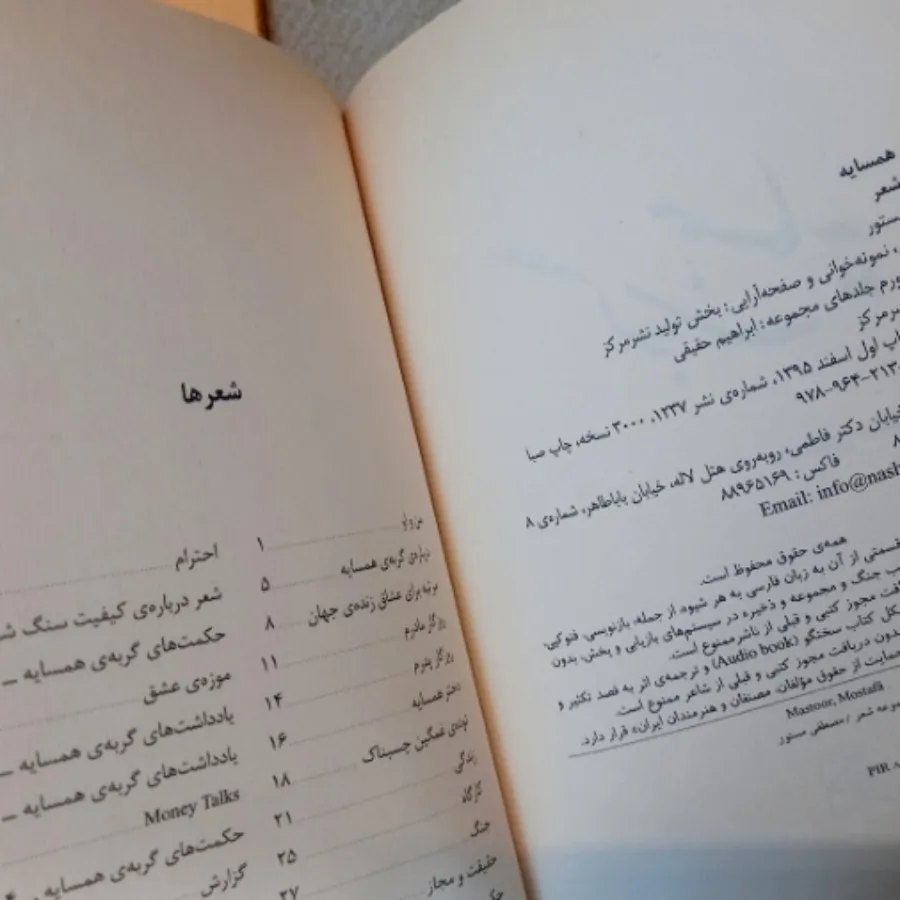 همسایه
شعر
مستور
، نمونه‌خوانی و صفحه‌آرایی: بخش تولید نشرمرکز
جلدهای مجموعه: ابراهیم حقیقی
نشرمرکز
چاپ اول اسفند ۱۳۹۵، شماره‌ی نشر ۱۲۳۷، ۳۰۰۰ نسخه، چاپ صبا
۹۷۸-۹۶۴-۲۱۳-
خیابان دکتر فاطمی، روبه‌روی هتل لاله، خیابان باباطاهر، شماره‌ی ۸
فاکس: ۸۸۹۶۵۱۶۹
Email: info@nash
همه‌ی حقوق محفوظ است.
قسمتی از آن به زبان فارسی به هر شیوه، از جمله: بازنویسی، فتوکپی،
جنگ و مجموعه و ذخیره در سیستم‌های بازیابی و پخش، بدون
دریافت مجوز کتبی و قبلی از ناشر ممنوع است.
شکل کتاب سخنگو (Audio book) و ترجمه‌ی اثر به قصد تکثیر و
بدون دریافت مجوز کتبی و قبلی از شاعر ممنوع است.
حمایت از حقوق مؤلفان، مصنفان و هنرمندان ایران» قرار دارد.
Mastoor, Mostafa
مجموعه شعر / مصطفی مستور
PIR
شعرها
من و او
درباره‌ی گربه‌ی همسایه
مرثیه برای عشاق زنده‌ی جهان
روزگار مادرم
روزگار پدرم
دختر همسایه
توده‌ی غمگین چسبناک
زندگی
کارگاه
جنگ
حقیقت و مجاز
۱
۵
۸
۱۱
۱۴
۱۶
۱۸
۲۱
۲۵
۲۷
احترام
شعر درباره‌ی کیفیت سنگ
حکمت‌های گربه‌ی همسایه –
موزه‌ی عشق
یادداشت‌های گربه‌ی همسایه –
یادداشت‌های گربه‌ی همسایه –
Money Talks
حکمت‌های گربه‌ی همسایه –
گزارش